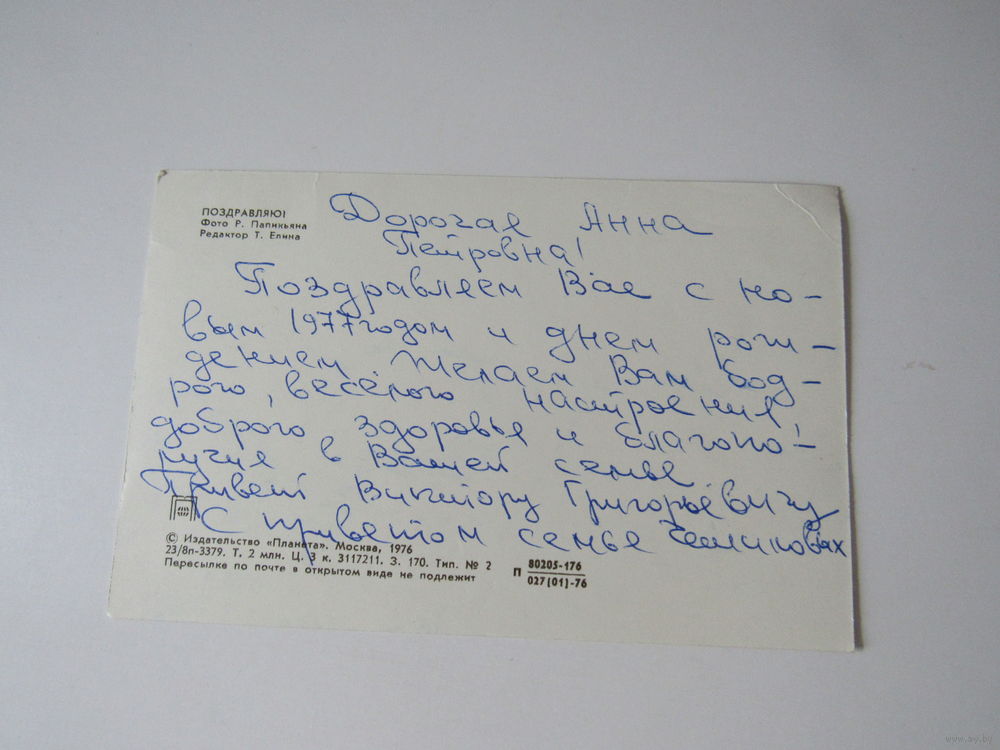 ПОЗДРАВЛЯЮ!
Фото Р. Папикьяна
Редактор Т. Елина
Дорогая Анна
Петровна!
Поздравляем Вас с но-
вым 1977 годом и днем рож-
дением Желаем Вам бод-
рого, весёлого настроения
доброго здоровья и благопо-
лучия в Вашей семье
Привет Виктору Григорьевичу
С приветом семья
© Издательство «Планета». Москва, 1976
23/8п-3379. Т. 2 млн. Ц. 3 к. 3117211. З. 170. Тип. № 2
Пересылке по почте в открытом виде не подлежит
П 80205-176
027(01)-76
www.ay.by